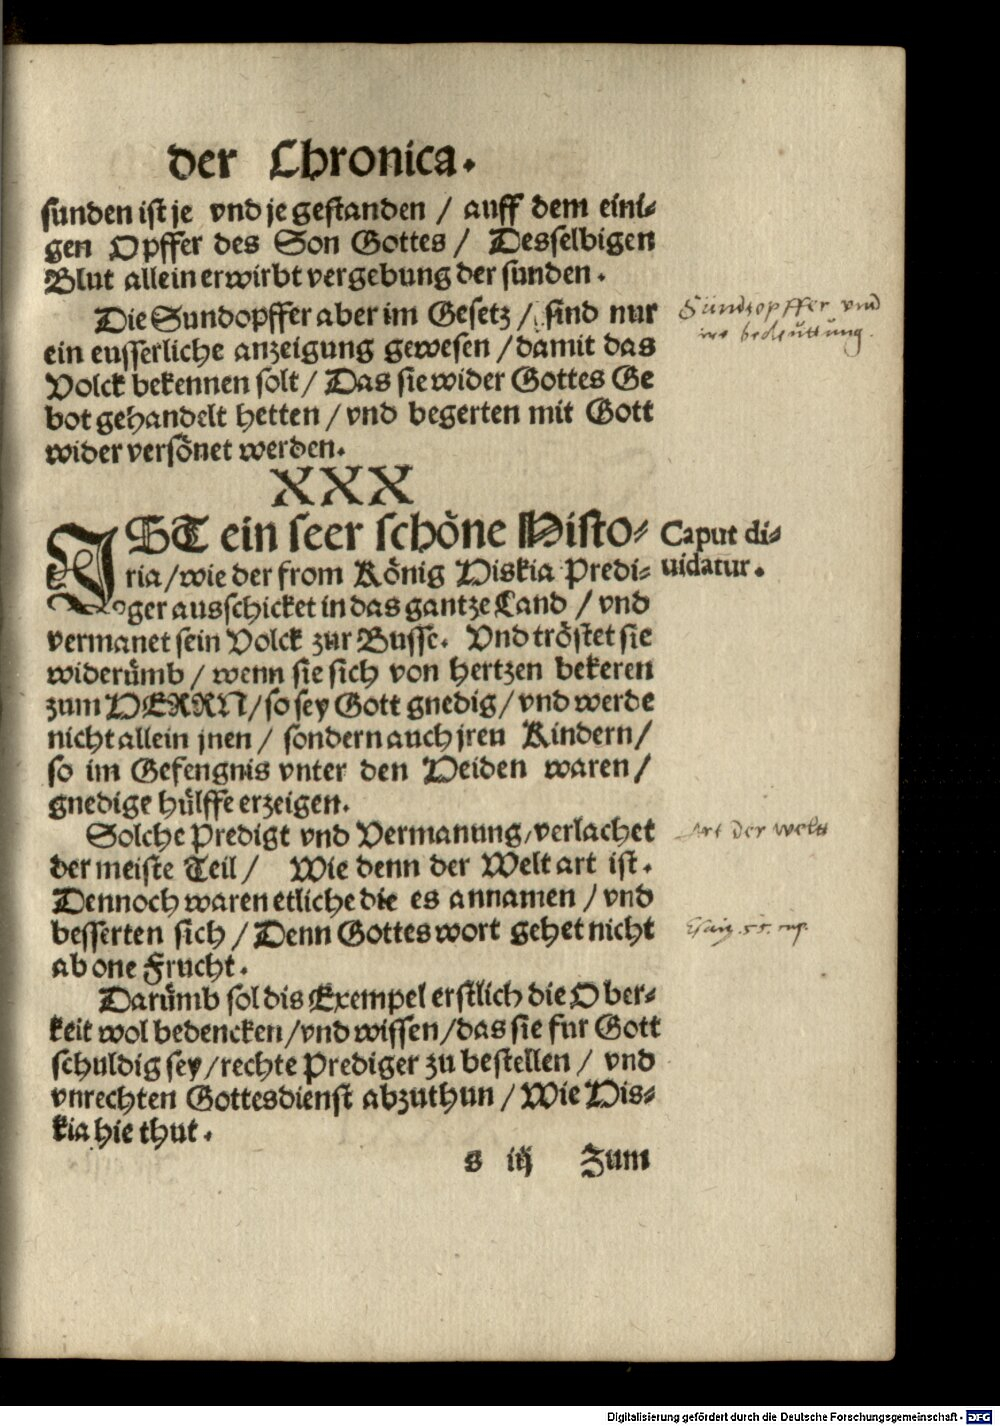 der Chronica.
sunden ist je vnd je gestanden / auff dem eini-
gen Opffer des Son Gottes / Desselbigen
Blut allein erwirbt vergebung der sunden.
Die Sundopffer aber im Gesetz / sind nur
ein eusserliche anzeigung gewesen / damit das
Volck bekennen solt / Das sie wider Gottes Ge
bot gehandelt hetten / vnd begerten mit Gott
wider versönet werden.
Sündtopffer vnd
ire bedeuttung.
XXX
IST ein seer schöne Histo-
ria / wie der from König Hiskia Predi-
ger ausschicket in das gantze Land / vnd
vermanet sein Volck zur Busse. Vnd tröstet sie
widerümb / wenn sie sich von hertzen bekeren
zum HERRN / so sey Gott gnedig / vnd werde
nicht allein jnen / sondern auch jren Kindern /
so im Gefengnis vnter den Heiden waren /
gnedige hülffe erzeigen.
Caput di-
uidatur.
Solche Predigt vnd Vermanung / verlachet
der meiste Teil / Wie denn der Welt art ist.
Dennoch waren etliche die es annamen / vnd
besserten sich / Denn Gottes wort gehet nicht
ab one Frucht.
Art der welt
Esaiæ 55. cap.
Darümb sol dis Exempel erstlich die Ober-
keit wol bedencken / vnd wissen / das sie fur Gott
schuldig sey / rechte Prediger zu bestellen / vnd
vnrechten Gottesdienst abzuthun / Wie His-
kia hie thut.
s iij Zum
Digitalisierung gefördert durch die Deutsche Forschungsgemeinschaft - DFG